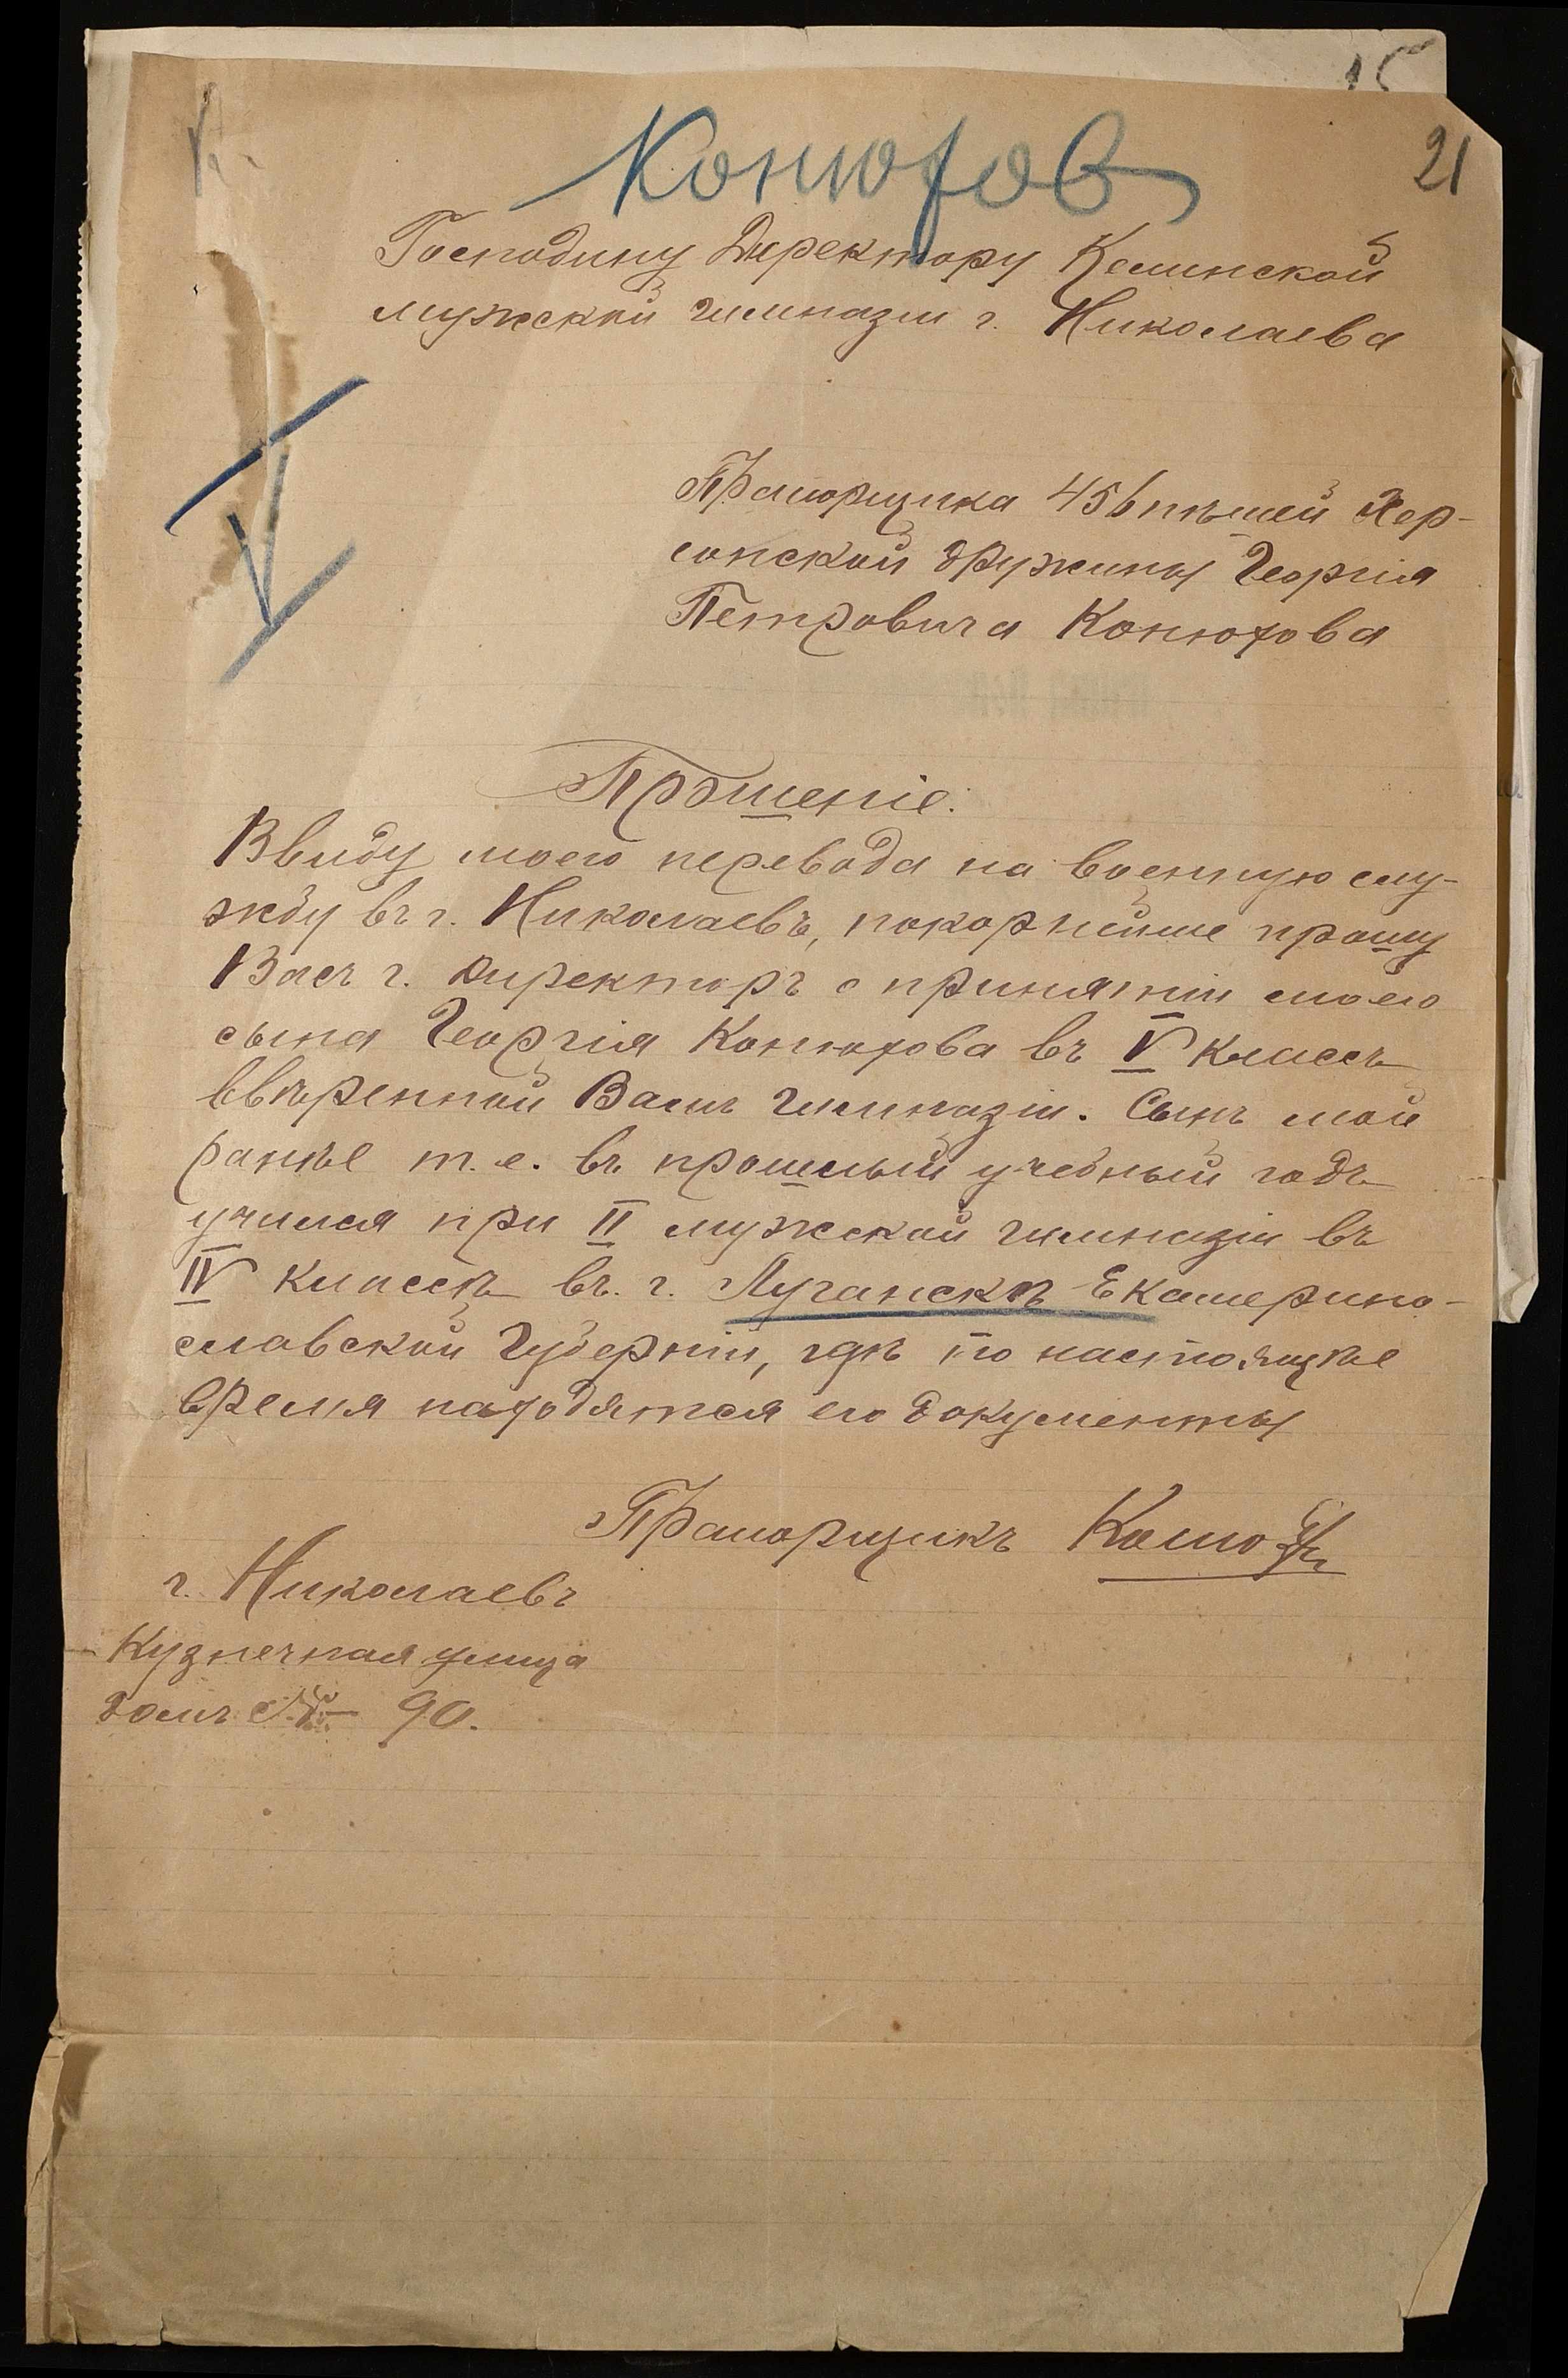 15
21
Конюхов
Господину Директору Келинской
мужской гимназіи г. Николаева
V
Прапорщика 456 пѣшей Хер-
сонской дружины Георгія
Петровича Конюхова
Прошеніе.
Ввиду моего перевода на военную слу-
жбу въ г. Николаевъ, покорнейше прошу
Васъ г. Директоръ о принятіи моего
сына Георгія Конюхова въ V классъ
ввѣренной Вамъ гимназіи. Сынъ мой
ранѣе т.е. въ прошлый учебный годъ
учился при II мужской гимназіи въ
IV классѣ въ. г. Луганскѣ Екатерино-
славской Губерніи, гдѣ по настоящѣе
время находятся его документы
Прапорщикъ Конюхов
г. Николаевъ
Кузнечная улица
домъ № 90.